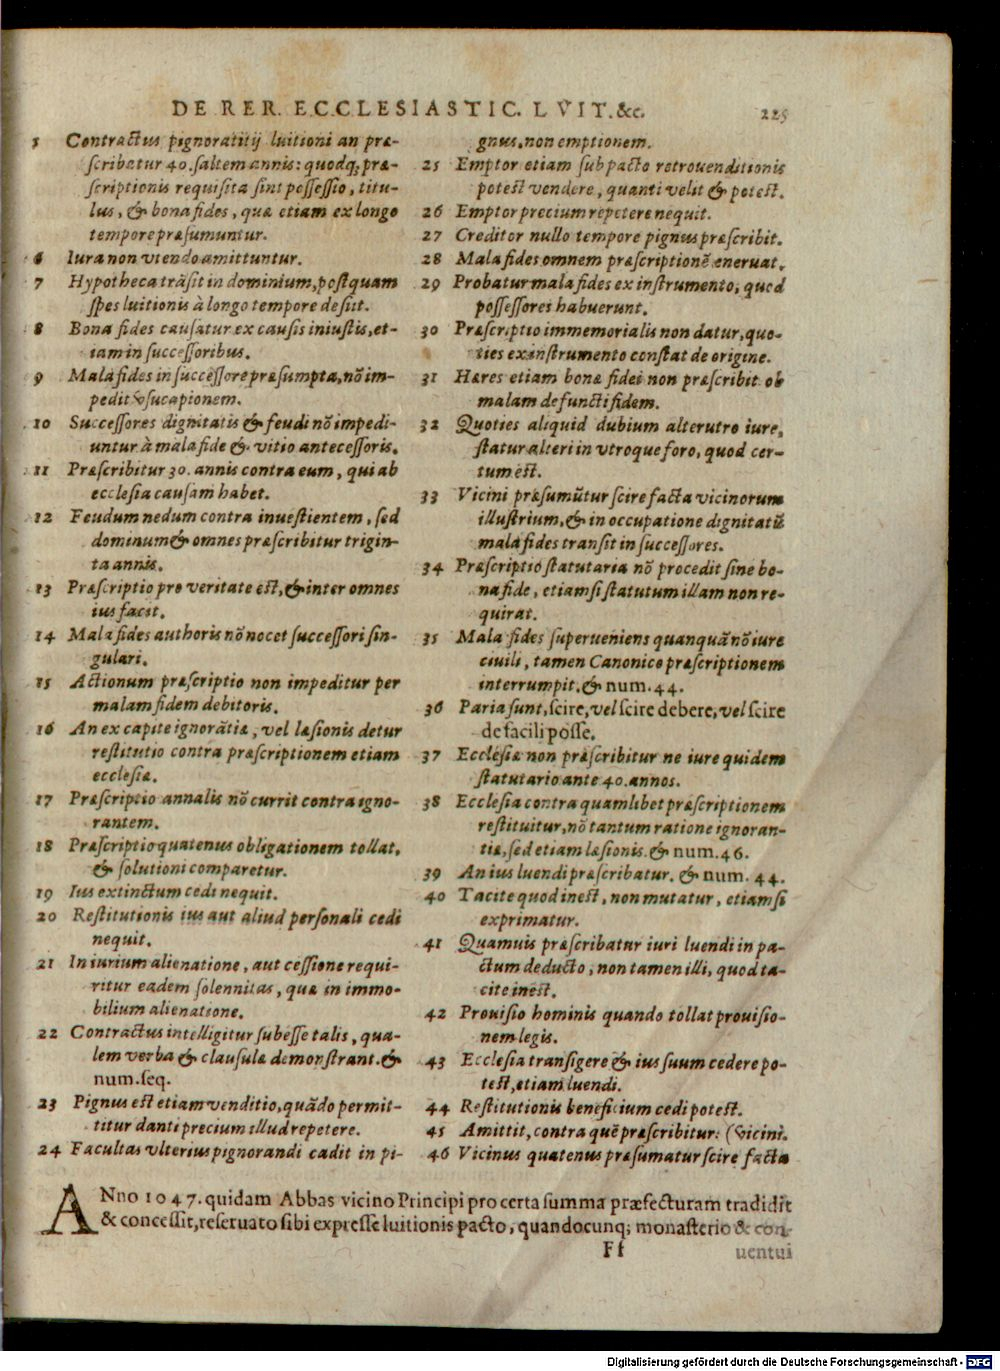 DE RER. ECCLESIASTIC. LVIT. &c. 225
5 Contractus pignoratitij luitioni an præ-
scribatur 40. saltem annis: quodq; præ-
scriptionis requisita sint possessio, titu-
lus, & bona fides, quæ etiam ex longo
tempore præsumuntur.
6 Iura non vtendo amittuntur.
7 Hypotheca trãsit in dominium, postquam
spes luitionis à longo tempore desiit.
8 Bona fides causatur ex causis iniustis, et-
iam in successoribus.
9 Mala fides in successore præsumpta, nõ im-
pedit vsucapionem.
10 Successores dignitatis & feudi nõ impedi-
untur à mala fide & vitio antecessoris.
11 Præscribitur 30. annis contra eum, qui ab
ecclesia causam habet.
12 Feudum nedum contra inuestientem, sed
dominum & omnes præscribitur trigin-
ta annis.
13 Præscriptio pro veritate est, & inter omnes
ius facit.
14 Mala fides authoris nõ nocet successori sin-
gulari.
15 Actionum præscriptio non impeditur per
malam fidem debitoris.
16 An ex capite ignorãtiæ, vel læsionis detur
restitutio contra præscriptionem etiam
ecclesiæ.
17 Præscriptio annalis nõ currit contra igno-
rantem.
18 Præscriptio quatenus obligationem tollat,
& solutioni comparetur.
19 Ius extinctum cedi nequit.
20 Restitutionis ius aut aliud personali cedi
nequit.
21 In iurium alienatione, aut cessione requi-
ritur eadem solennitas, quæ in immo-
bilium alienatione.
22 Contractus intelligitur subesse talis, qua-
lem verba & clausulæ demonstrant. &
num. seq.
23 Pignus est etiam venditio, quãdo permit-
titur danti precium illud repetere.
24 Facultas vlterius pignorandi cadit in pi-
gnus, non emptionem.
25 Emptor etiam sub pacto retrouenditionis
potest vendere, quanti velit & potest.
26 Emptor precium repetere nequit.
27 Creditor nullo tempore pignus præscribit.
28 Mala fides omnem præscriptionẽ eneruat.
29 Probatur mala fides ex instrumento, quod
possessores habuerunt.
30 Præscriptio immemorialis non datur, quo-
ties ex instrumento constat de origine.
31 Hæres etiam bonæ fidei non præscribit ob
malam defuncti fidem.
32 Quoties aliquid dubium alterutro iure,
statur alteri in vtroque foro, quod cer-
tum est.
33 Vicini præsumũtur scire facta vicinorum
illustrium, & in occupatione dignitatũ
mala fides transit in successores.
34 Præscriptio statutaria nõ procedit sine bo-
na fide, etiamsi statutum illam non re-
quirat.
35 Mala fides superueniens quanquã nõ iure
ciuili, tamen Canonico præscriptionem
interrumpit. & num. 44.
36 Paria sunt, scire, vel scire debere, vel scire
de facili posse.
37 Ecclesiæ non præscribitur ne iure quidem
statutario ante 40. annos.
38 Ecclesia contra quamlibet præscriptionem
restituitur, nõ tantum ratione ignoran-
tiæ, sed etiam læsionis. & num. 46.
39 An ius luendi præscribatur. & num. 44.
40 Tacite quod inest, non mutatur, etiamsi
exprimatur.
41 Quamuis præscribatur iuri luendi in pa-
ctum deducto, non tamen illi, quod ta-
cite inest.
42 Prouisio hominis quando tollat prouisio-
nem legis.
43 Ecclesia transigere & ius suum cedere po-
test, etiam luendi.
44 Restitutionis beneficium cedi potest.
45 Amittit, contra quẽ præscribitur. (vicini.
46 Vicinus quatenus præsumatur scire facta
ANno 1047. quidam Abbas vicino Principi pro certa summa præfecturam tradidit
& concessit, reseruato sibi expresse luitionis pacto, quandocunq; monasterio & con-
Ff uentui
Digitalisierung gefördert durch die Deutsche Forschungsgemeinschaft - DFG